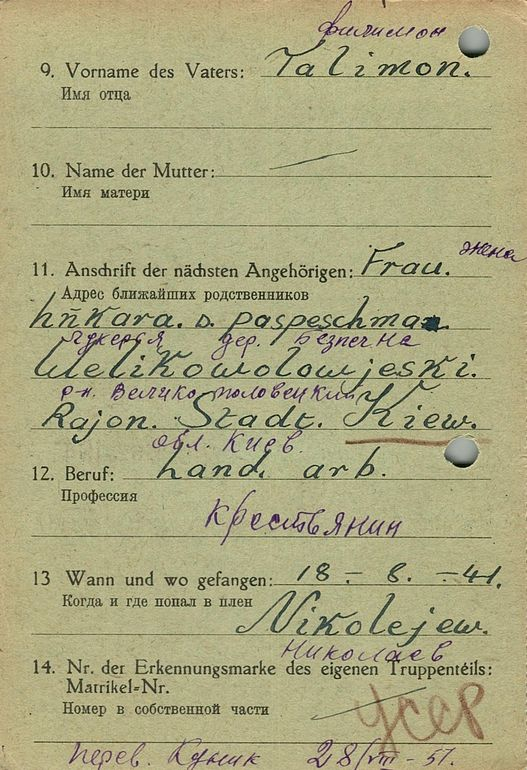 филимон
9. Vorname des Vaters: Talimon.
Имя отца
10. Name der Mutter: —
Имя матери
жена
11. Anschrift der nächsten Angehörigen: Frau.
Адрес ближайших родственников
D. paspeschma
дер. Безпечна
Welikowolowjeski.
р-н. Велико половецкий
Rajon. Stadt. Kiew.
обл. Киев.
12. Beruf: Land. arb.
Профессия
Крестьянин
13 Wann und wo gefangen: 18 – 8. – 41.
Когда и где попал в плен
Nikolejew.
Николаев
14. Nr. der Erkennungsmarke des eigenen Truppenteils:
Matrikel-Nr.
Номер в собственной части —
УССР
перев. Кулик 28/VIII – 51.